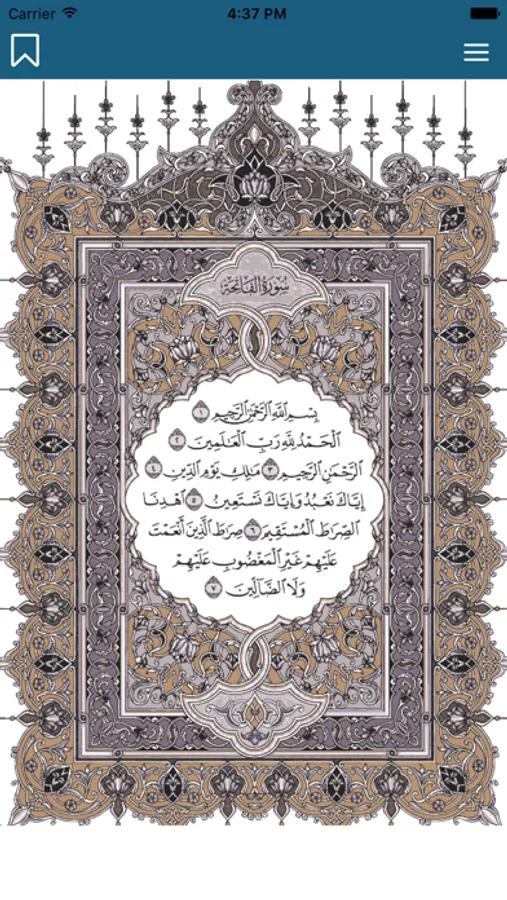 Carrier 4:37 PM
سُورَةُ الفَاتِحَةِ
بِسْمِ اللَّهِ الرَّحْمَٰنِ الرَّحِيمِ ١
الْحَمْدُ لِلَّهِ رَبِّ الْعَالَمِينَ ٢
الرَّحْمَٰنِ الرَّحِيمِ ٣ مَالِكِ يَوْمِ الدِّينِ ٤
إِيَّاكَ نَعْبُدُ وَإِيَّاكَ نَسْتَعِينُ ٥ اهْدِنَا
الصِّرَاطَ الْمُسْتَقِيمَ ٦ صِرَاطَ الَّذِينَ أَنْعَمْتَ
عَلَيْهِمْ غَيْرِ الْمَغْضُوبِ عَلَيْهِمْ
وَلَا الضَّالِّينَ ٧